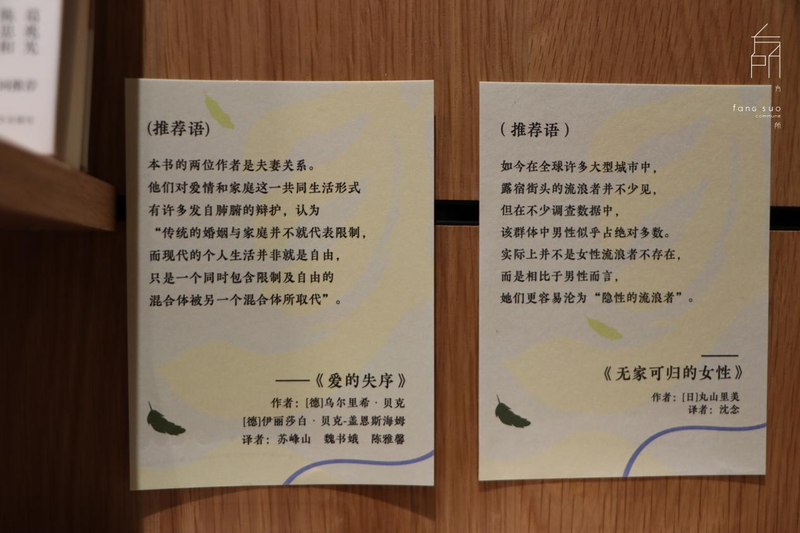 (推荐语)
本书的两位作者是夫妻关系。
他们对爱情和家庭这一共同生活形式
有许多发自肺腑的辩护，认为
“传统的婚姻与家庭并不就代表限制，
而现代的个人生活并非就是自由，
只是一个同时包含限制及自由的
混合体被另一个混合体所取代”。
——《爱的失序》
作者：[德]乌尔里希·贝克
[德]伊丽莎白·贝克-盖恩斯海姆
译者：苏峰山 魏书娥 陈雅馨
（推荐语）
如今在全球许多大型城市中，
露宿街头的流浪者并不少见，
但在不少调查数据中，
该群体中男性似乎占绝对多数。
实际上并不是女性流浪者不存在，
而是相比于男性而言，
她们更容易沦为“隐性的流浪者”。
——
《无家可归的女性》
作者：[日]丸山里美
译者：沈念
方所
fang suo
commune